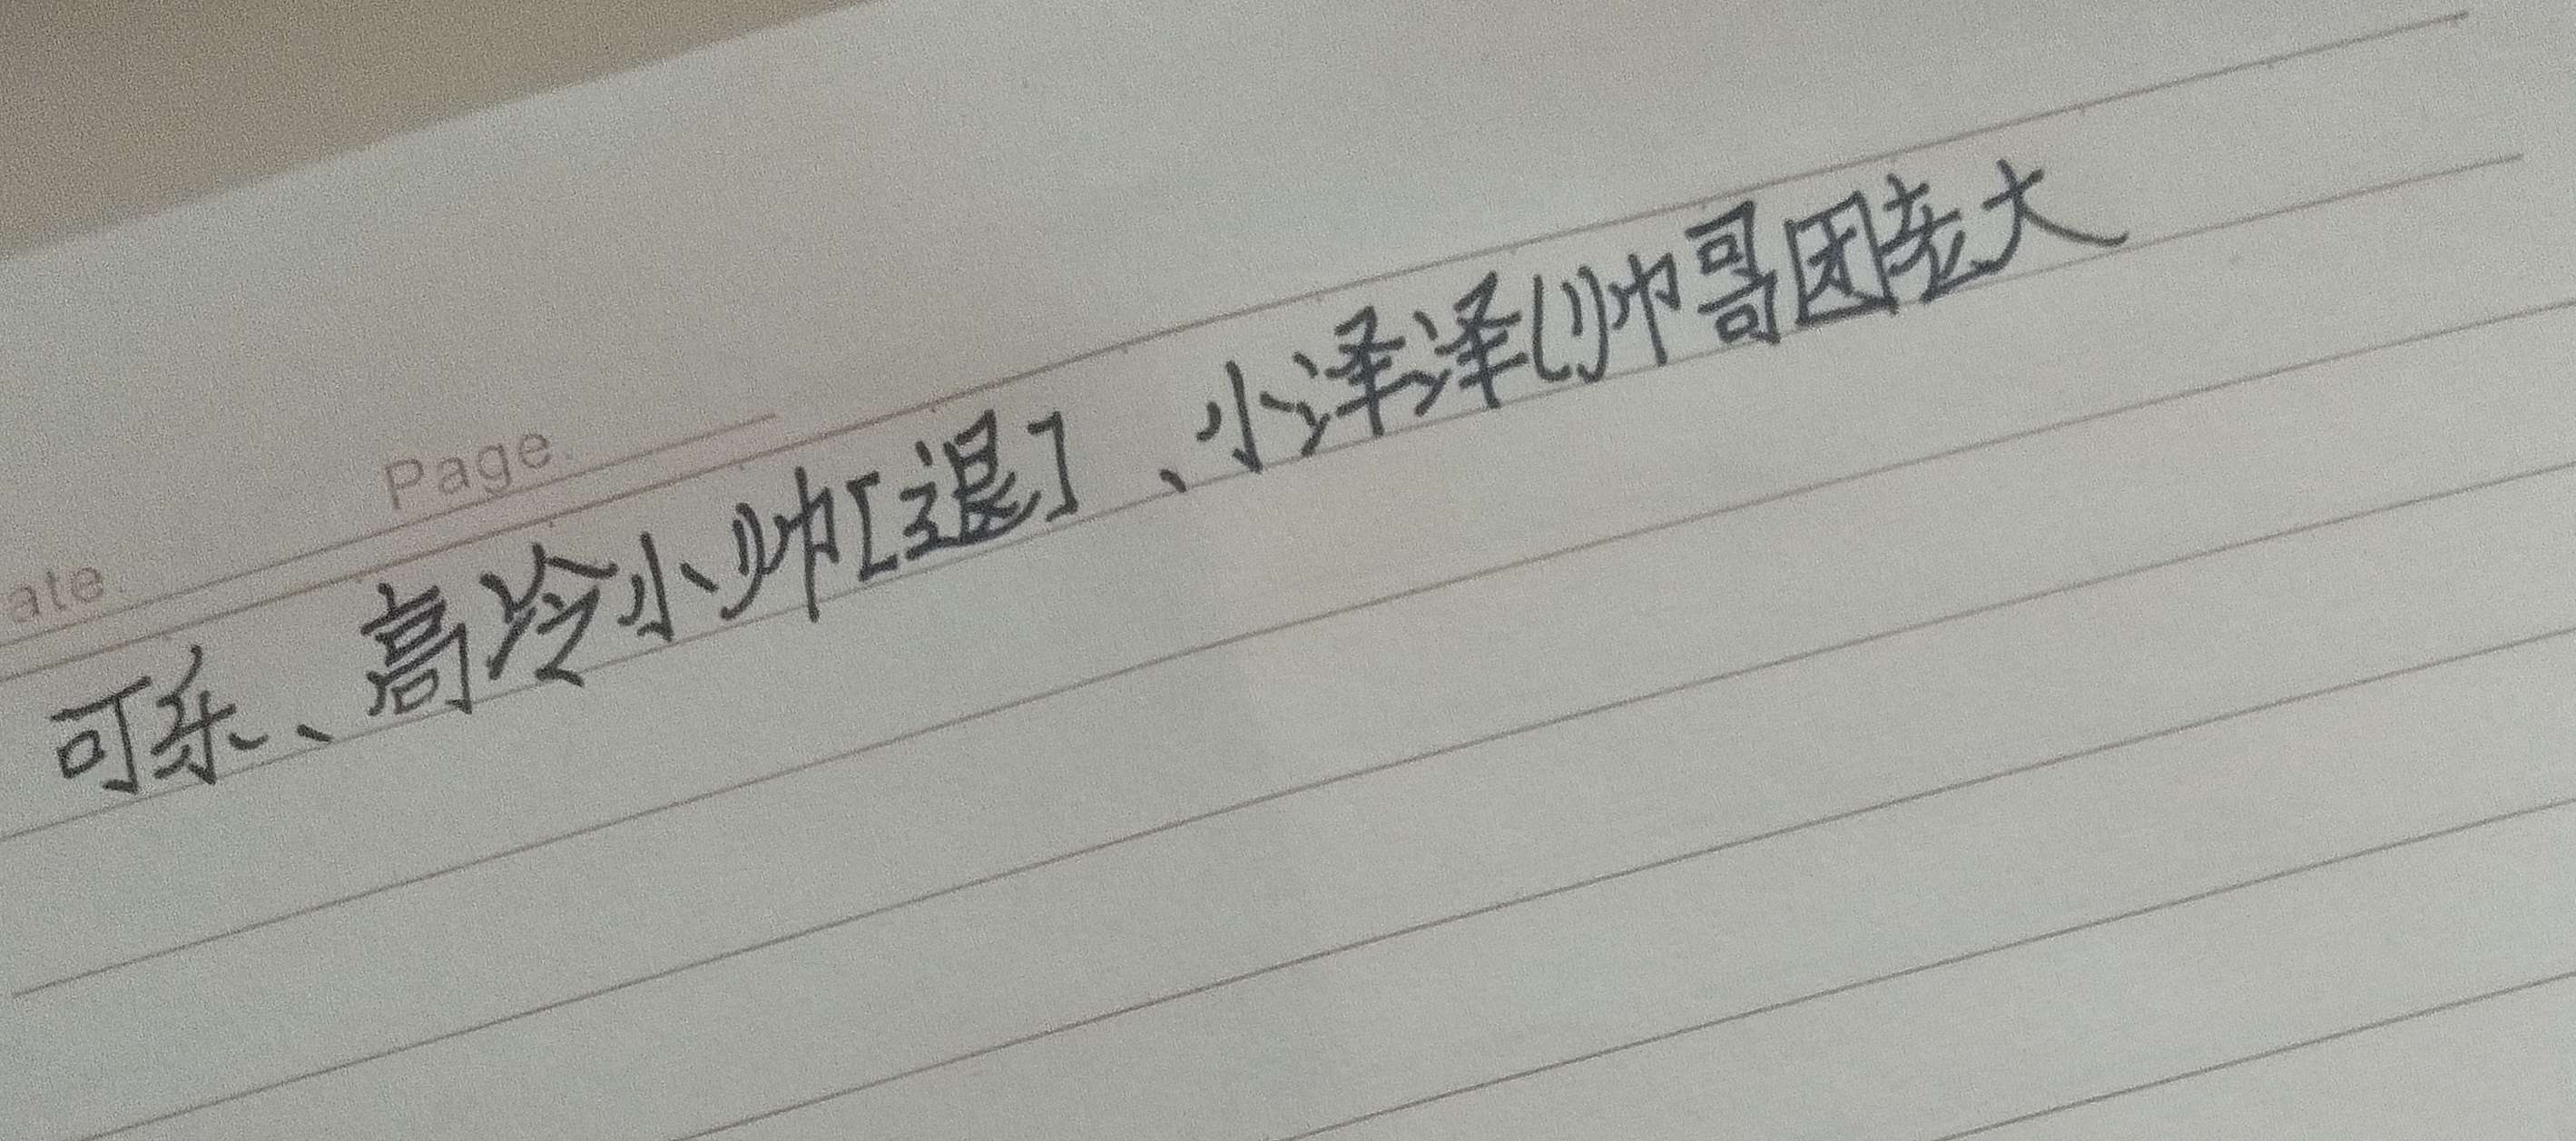 Page.
ate.
可乐、高冷小帅[退]、小泽泽(帅哥团老大